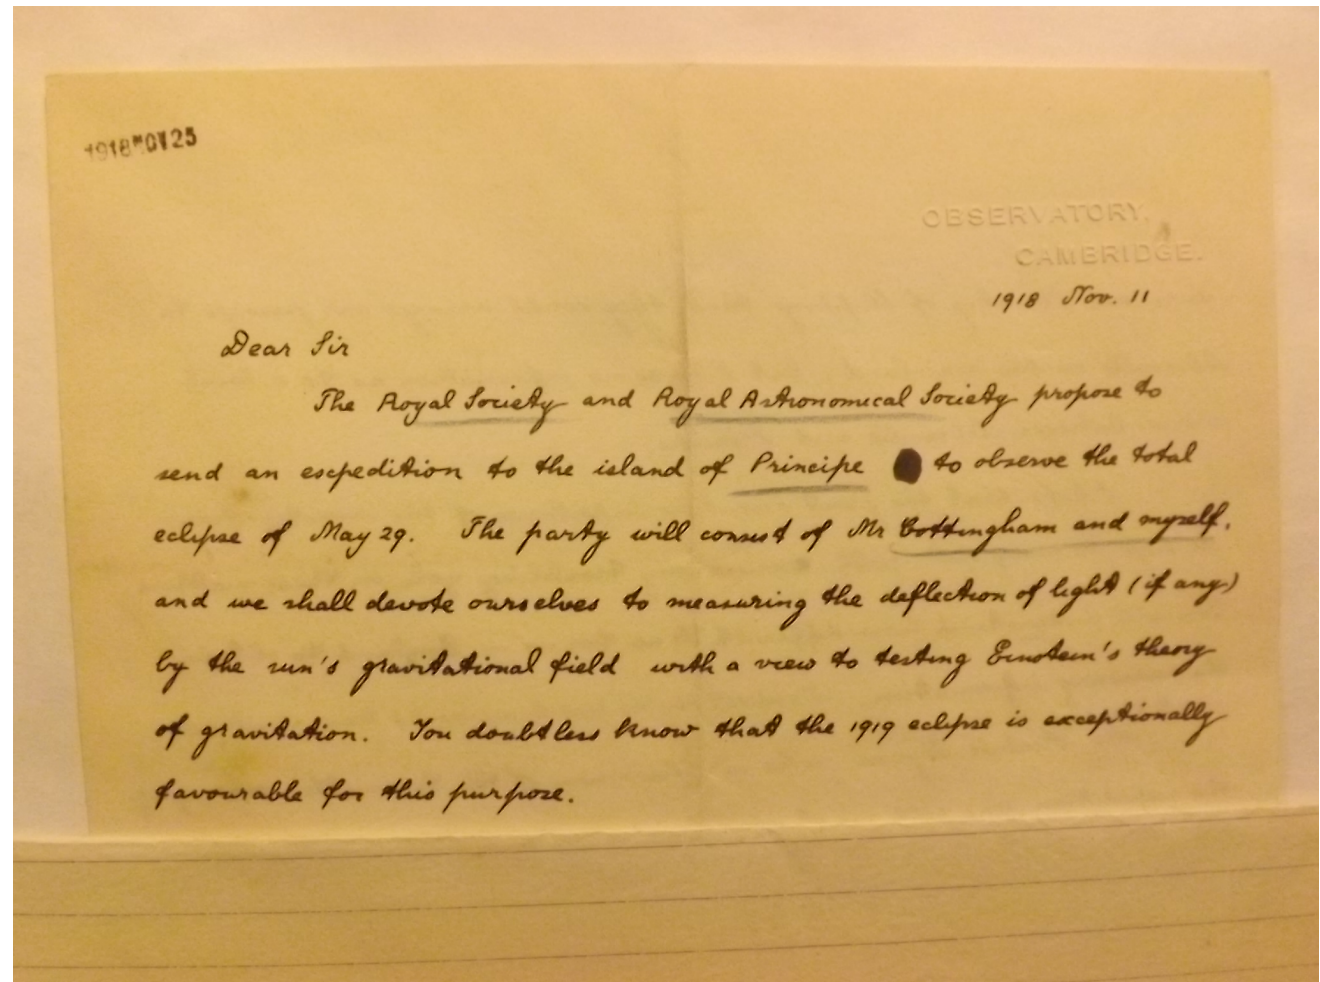 1918 NOV 25
OBSERVATORY,
CAMBRIDGE.
1918 Nov. 11
Dear Sir
The Royal Society and Royal Astronomical Society propose to
send an expedition to the island of Principe to observe the total
eclipse of May 29. The party will consist of Mr Cottingham and myself,
and we shall devote ourselves to measuring the deflection of light (if any)
by the sun's gravitational field with a view to testing Einstein's theory
of gravitation. You doubtless know that the 1919 eclipse is exceptionally
favourable for this purpose.